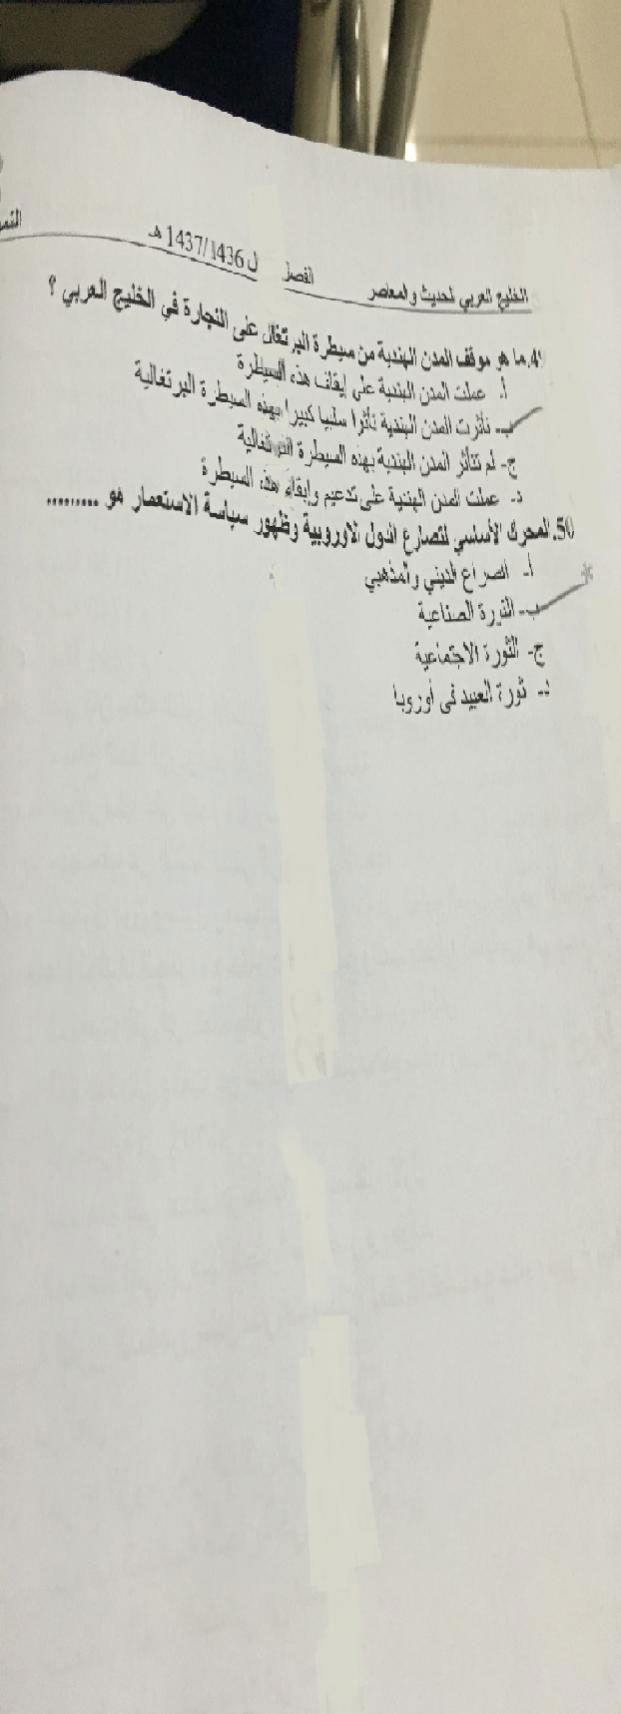 الخليج العربي الحديث والمعاصر الفصل ل 1437/1436 هـ
49. ما هو موقف المدن الهندية من سيطرة البرتغال على التجارة في الخليج العربي ؟
أ. عملت المدن الهندية على إيقاف هذه السيطرة
ب- تأثرت المدن الهندية تأثرا سلبيا كبيرا بهذه السيطرة البرتغالية
ج- لم تتأثر المدن الهندية بهذه السيطرة البرتغالية
د- عملت المدن الهندية على تدعيم وإبقاء هذه السيطرة
50. المحرك الأساسي لتصارع الدول الاوروبية وظهور سياسة الاستعمار هو .........
أ- الصراع الديني والمذهبي
ب- الثورة الصناعية
ج- الثورة الاجتماعية
د- ثورة العبيد في أوروبا